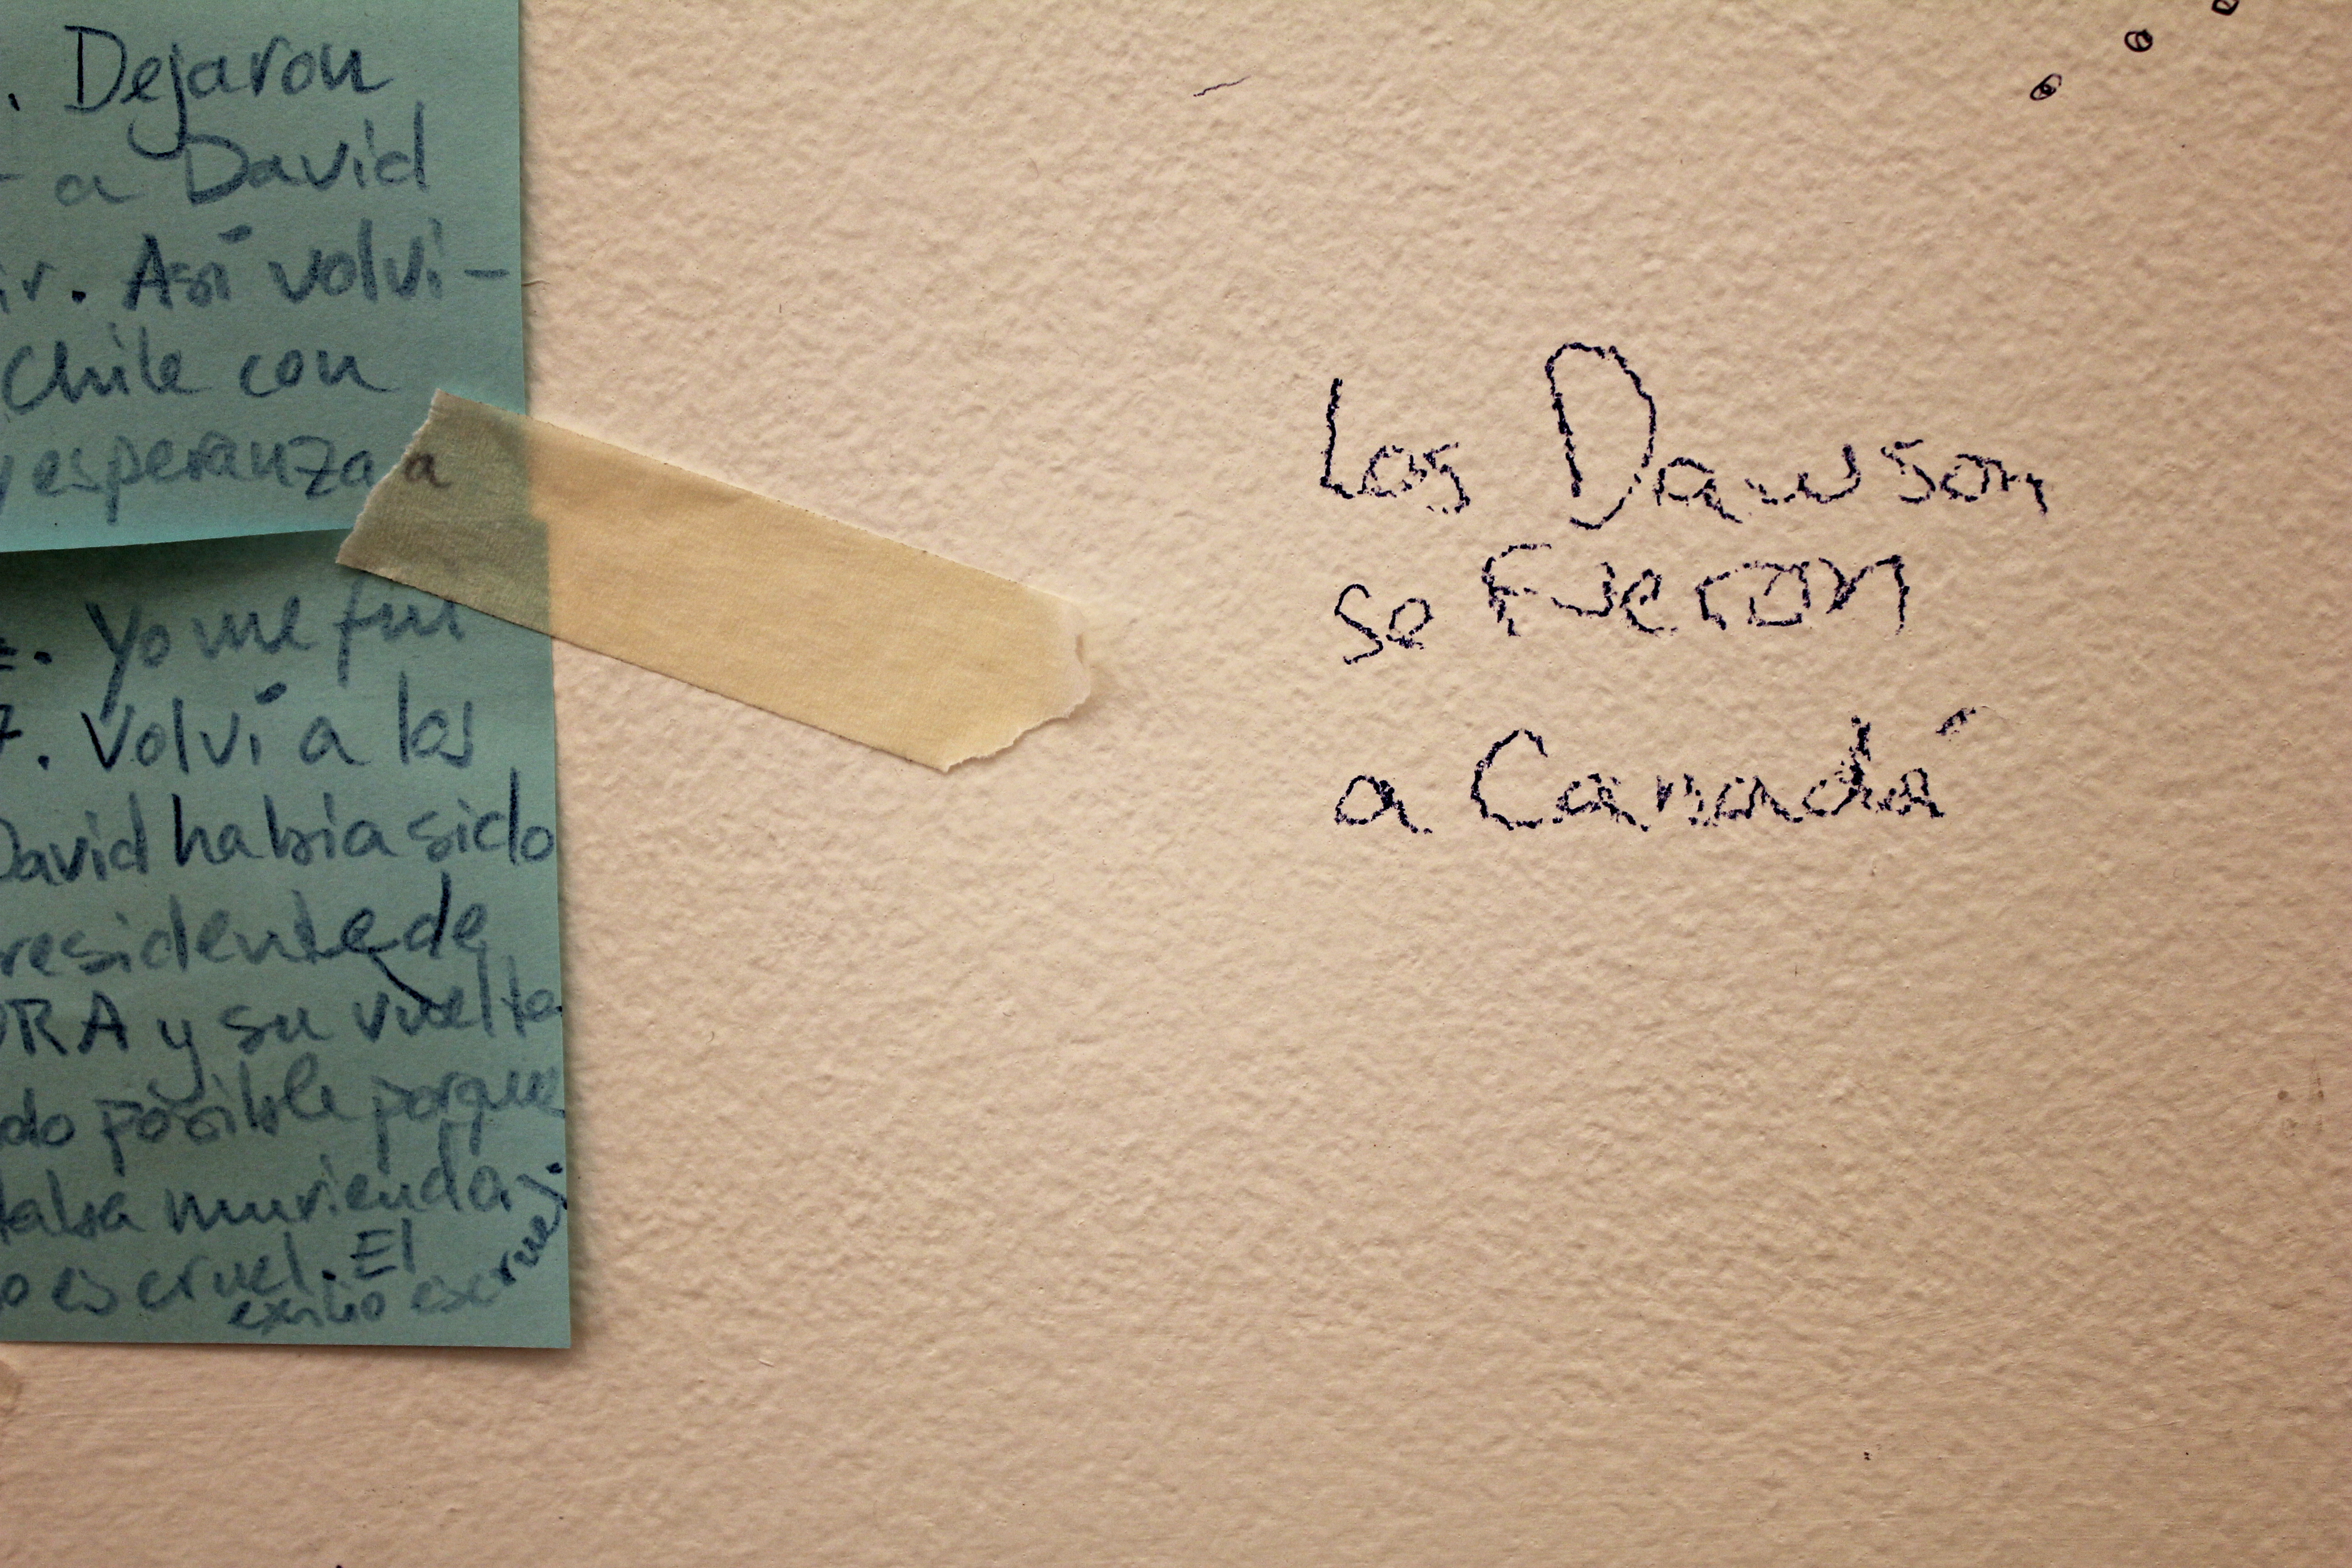 . Dejaron
a David
ir. Así volvi-
Chile con
y esperanza a
. Yo me fui
7. Volví a los
David había sido
residente de
ORA y su vuelta
do posible porque
taba muriendo
o es cruel. El
exilio es cruel.
Los Dawson
se Fueron
a Canadá